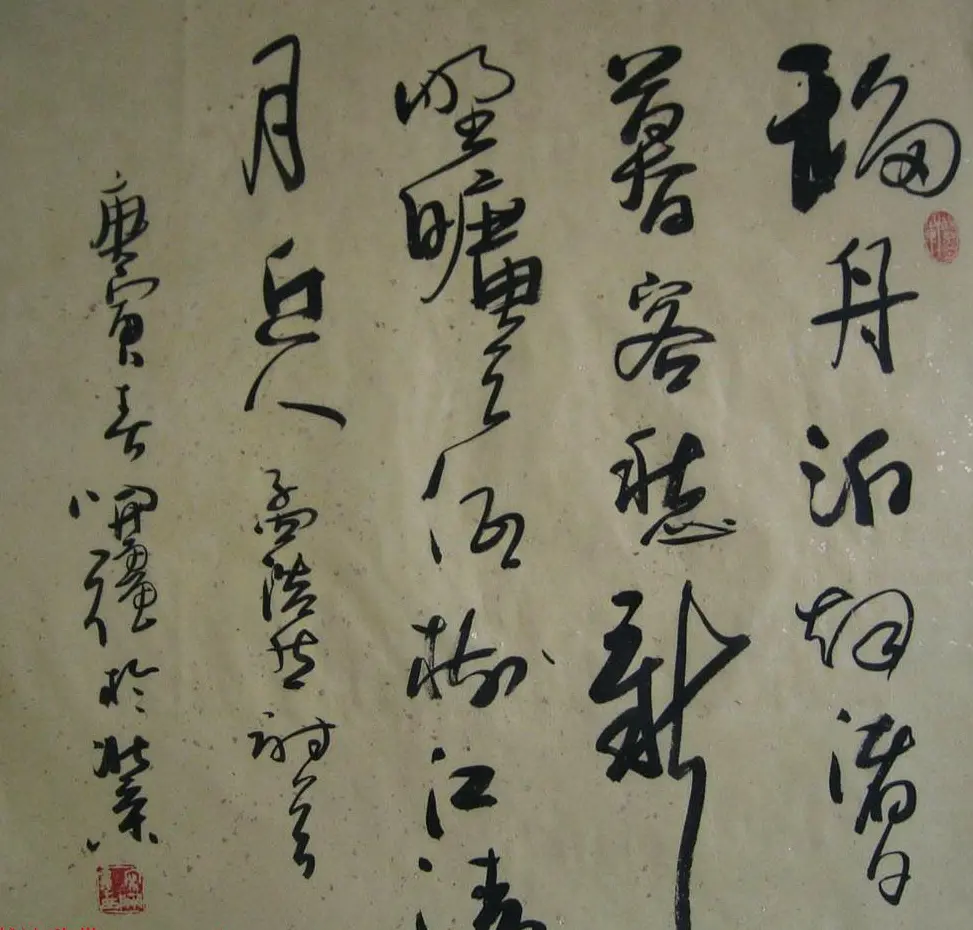 移舟泊烟渚日
暮客愁新
野曠天低樹江清
月近人 孟浩然詩
庚寅春 開疆於